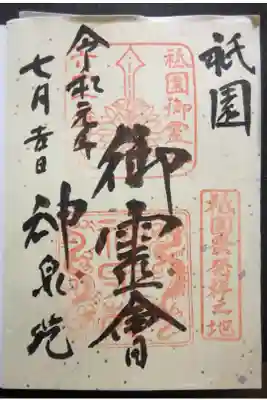 祇園
祇園御霊
祇園祭発祥之地
御霊會
令和元年
七月吉日
神泉苑